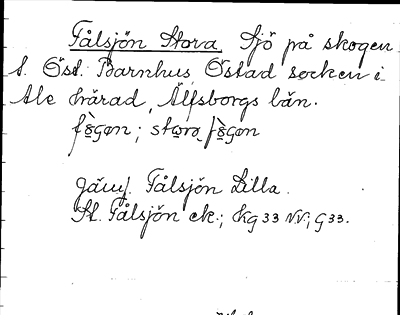 Fålsjön Stora, Sjö på skogen
t. Öst. Barnhus, Östad socken i
Ale härad, Älfsborgs län.
Jämf. Fålsjön Lilla.
St. Fålsjön ek.; Kg 33 NV; G 33.